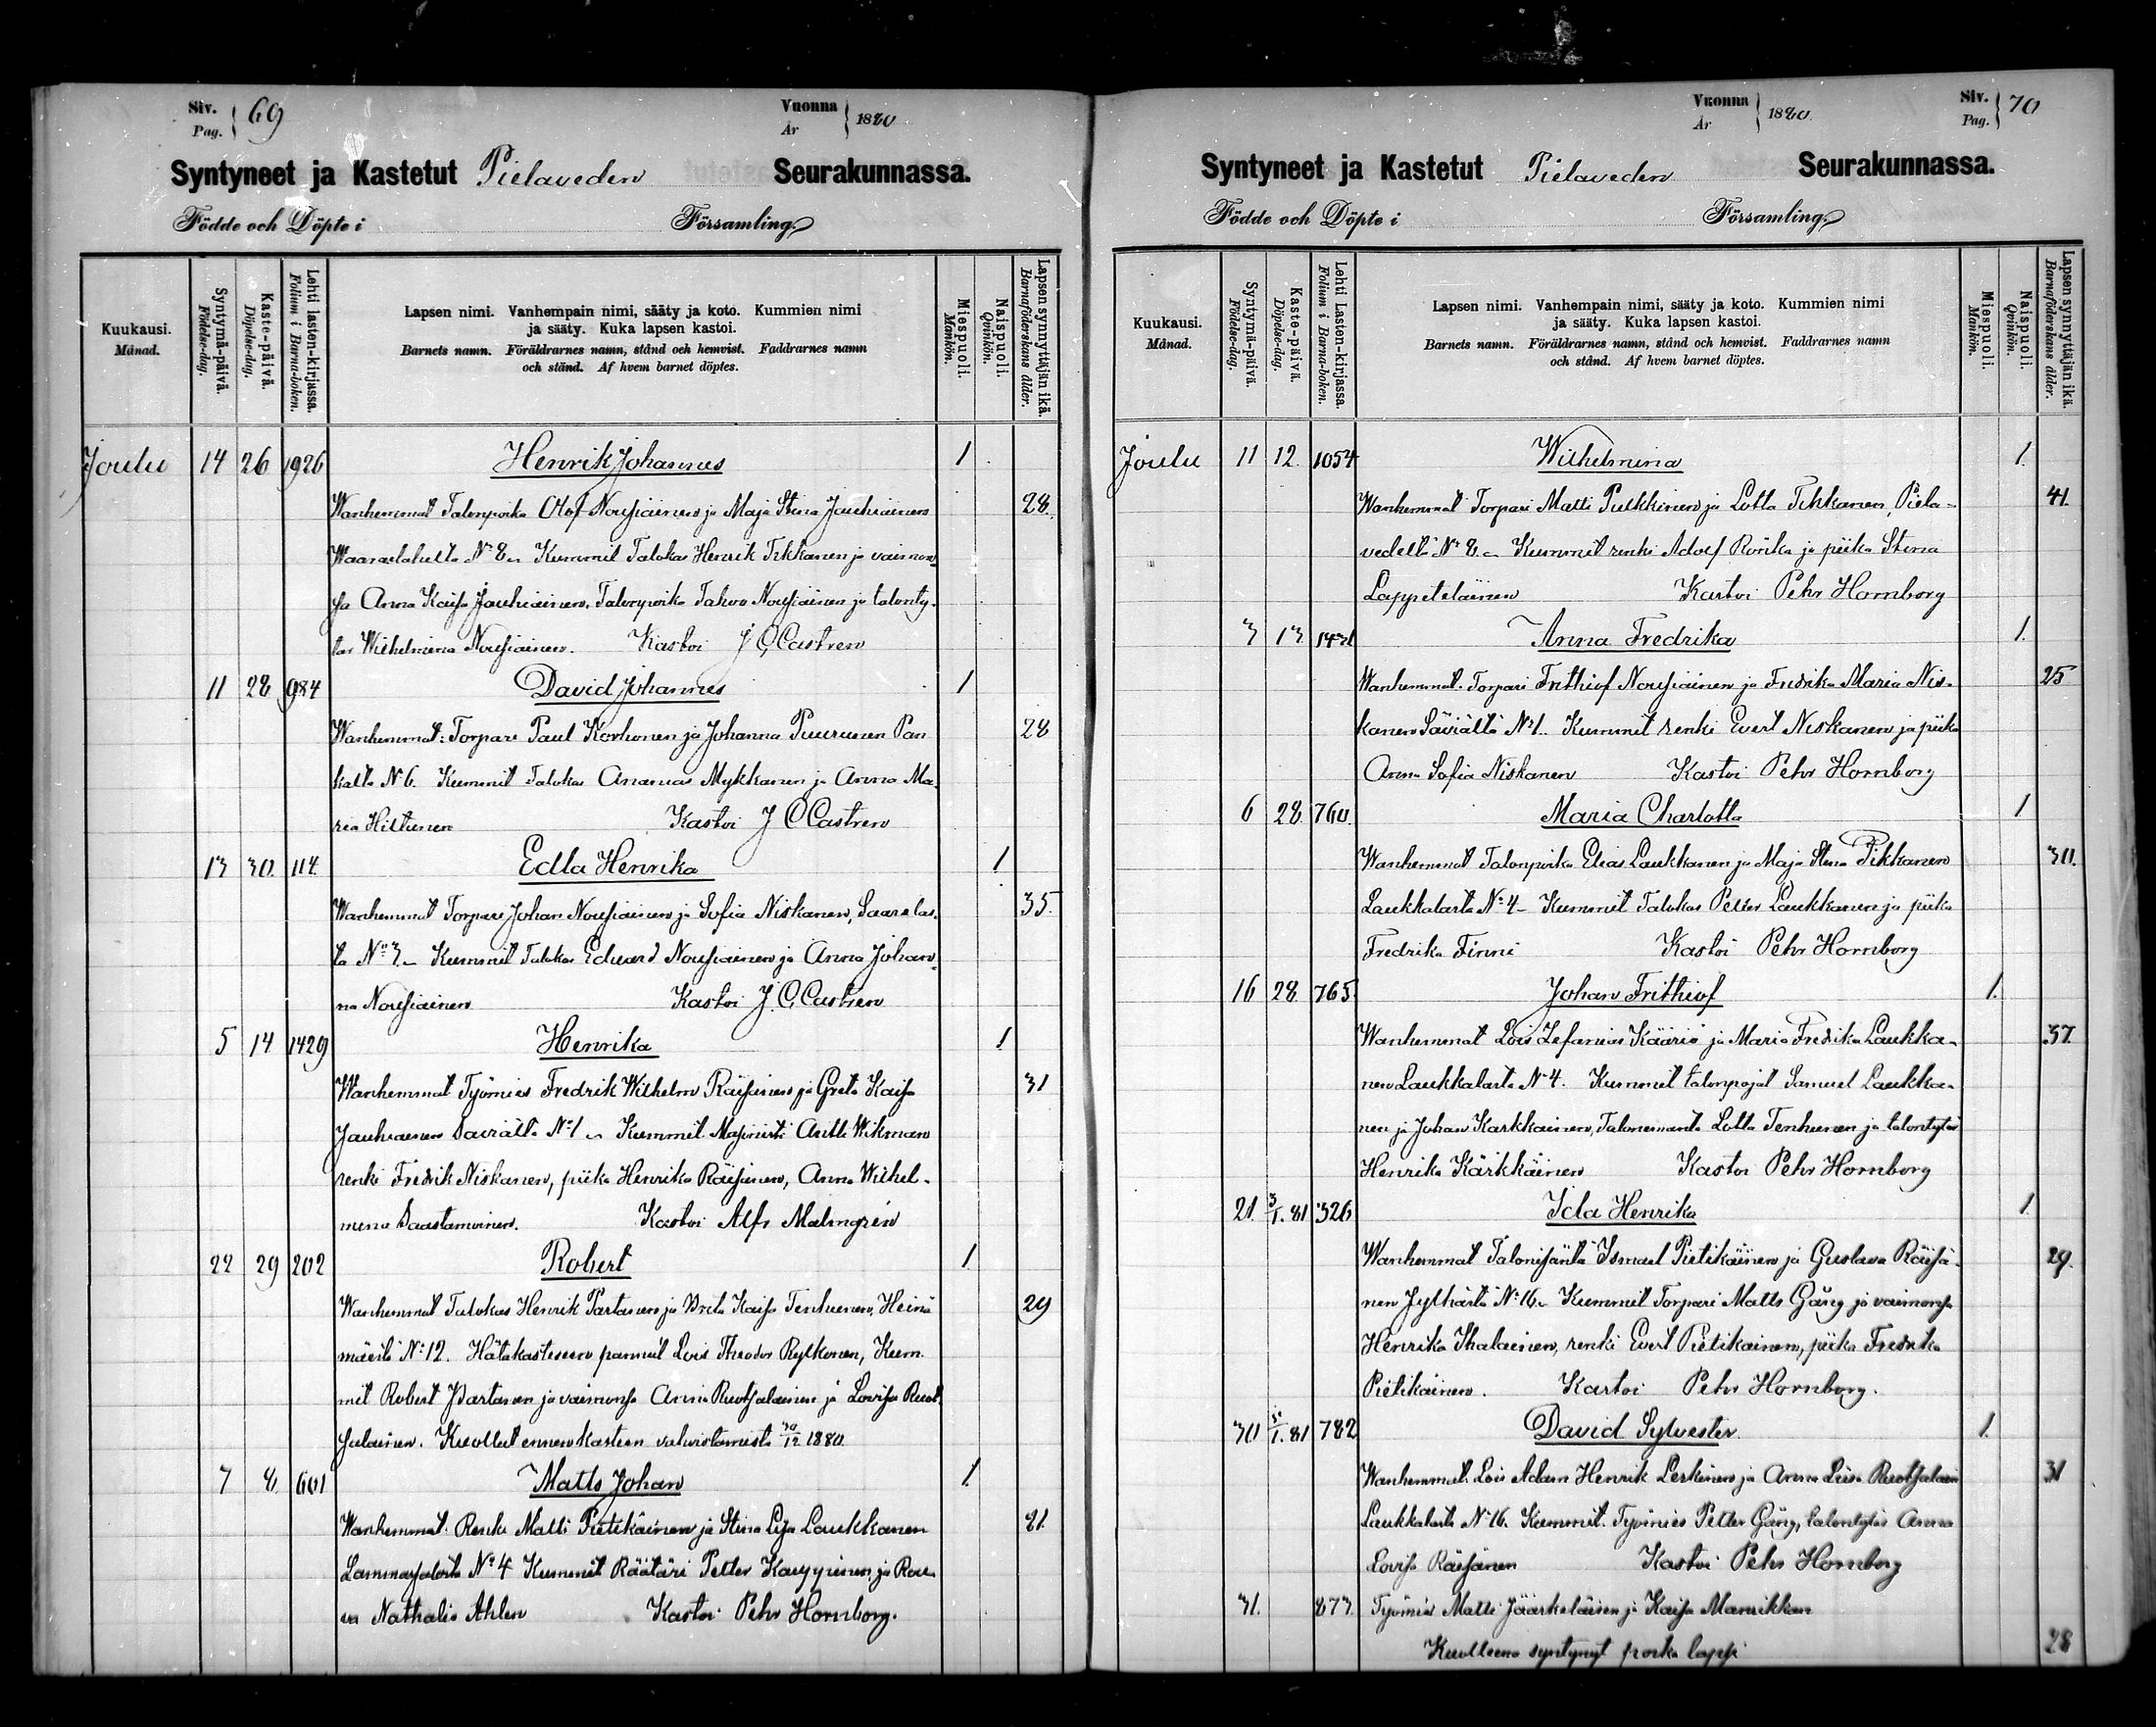 Siv. Pag. 69 Vuonna År 1880
Syntyneet ja Kastetut Pielaveden Seurakunnassa.
Födde och Döpte i Församling.
Kuukausi. Månad. Syntymä-päivä. Födelse-dag. Kaste-päivä. Döpelse-dag. Lehti lasten-kirjassa. Folium i Barna-boken. Lapsen nimi. Vanhempain nimi, sääty ja koto. Kummien nimi ja sääty. Kuka lapsen kastoi. Barnets namn. Föräldrarnes namn, stånd och hemvist. Faddrarnes namn och stånd. Af hvem barnet döptes. Miespuoli. Mankön. Naispuoli. Qvinkön. Lapsen synnyttäjän ikä. Barnaföderskans ålder.
Joulu 14 26 1926 Henrik Johannes 1
Wanhemmat Talonpoika Olof Nousiainen ja Maja Stina Jauhiainen 28.
N:o 8. Kummit Talokas Henrik Tikkanen ja vaimon-
sa Anna Kaisa Jauhiainen, Talonpoika Nousiainen ja talonty-
tär Wilhelmina Nousiainen. Kastoi J C Castren
11 28 984 David Johannes 1
Wanhemmat: Torpari Paul Korhonen ja Johanna Puurunen Pan
kalta N:6. Kummit Talokas Ananias Mykkanen ja Anna Ma-
ria Hiltunen Kastoi J C Castren
13 30. 114. Edla Henrika 1
Wanhemmat Torpari Johan Nousiainen ja Sofia Niskanen, Saarelas-
ta N:o 3. Kummit Talokas Eduard Nousiainen ja Anna Johan-
na Nousiainen Kastoi J. C. Castren
5 14 1429 Henrika 1
Wanhemmat Työmies Fredrik Wilhelm Räisänen ja Greta Kaisa 31
Jauhiainen Säviältä N:o 1 Kummit Masinisti Antti Wikman
renki Fredrik Niskanen, piika Henrika Räisänen, Anna Wilhel-
mina Saastamoinen. Kastoi Alfr Malmgrén
22 29 202 Robert 1
Wanhemmat Talokas Henrik Partanen ja Brita Kaisa Tenhunen, Heinä 29
mäeltä N:o 12. Hätäkasteesen pannut Lois Theodor Rytkönen, Kum
mit Robert Partanen ja vaimonsa Anna Ruotsalainen ja Lovisa Ruot-
salainen. Kuollut ennen kasteen vahvistamista 30/12 1880.
7 8 601 Matts Johan 1.
Wanhemmat. Renki Matti Pietikäinen ja Stina Lisa Laukkanen 21.
Lammassalosta N:o 4 Kummit Räätäri Petter Kauppinen, ja Rou-
va Nathalia Ahlen Kastoi Pehr Hornborg.
Siv. Pag. 70 Vuonna År 1880.
Syntyneet ja Kastetut Pielaveden Seurakunnassa.
Födde och Döpte i Församling.
Kuukausi. Månad. Syntymä-päivä. Födelse-dag. Kaste-päivä. Döpelse-dag. Lehti Lasten-kirjassa. Folium i Barna-boken. Lapsen nimi. Vanhempain nimi, sääty ja koto. Kummien nimi ja sääty. Kuka lapsen kastoi. Barnets namn. Föräldrarnes namn, stånd och hemvist. Faddrarnes namn och stånd. Af hvem barnet döptes. Miespuoli. Mankön. Naispuoli. Qvinkön. Lapsen synnyttäjän ikä. Barnaföderskans ålder.
Joulu 11 12. 1054 Wilhelmina 1.
Wanhemmat Torpari Matti Pulkkinen ja Lotta Tikkanen, Piela- 41.
vedeltä N:o 8. Kummit renki Adolf ja piika Stina
Lappeteläinen Kastoi Pehr Hornborg
3 13 Anna Fredrika 1.
Wanhemmat. Torpari Frithiof Nousiainen ja Fredrika Maria Nis- 25
kanen Säviältä N:o 1. Kummit renki Evert Niskanen ja piika
Anna Sofia Niskanen Kastoi Pehr Hornborg
6 28 760. Maria Charlotta 1
Wanhemmat Talonpoika Elias Laukkanen ja Maja Stina Pikkanen 30.
Laukkalasta N:o 4 Kummit Talokas Petter Laukkanen ja piika
Fredrika Finni Kastoi Pehr Hornborg
16 28 765. Johan Frithiof 1.
Wanhemmat Lois Zefanias Kääriä ja Maria Fredrika Laukka- 37.
nen Laukkalasta N:4. Kummit talonpojat Samuel Laukka-
nen ja Johan Karkkainen, Talonemäntä Lotta Tenhunen ja talontytär
Henrika Kärkkäinen Kastoi Pehr Hornborg
21. 3/1.81 326 Ida Henrika 1.
Wanhemmat Talonisäntä Ismael Pietikäinen ja Gustava Räisä- 29.
nen Jylhästä N:o 16. Kummit Torpari Matts Gång ja vaimonsa
Henrika Ihalainen, renki Evert Pietikainen, piika Fredrika
Pietikäinen. Kastoi Pehr Hornborg.
30 /1.81 782 David Sylvester 1.
Wanhemmat. Lois Adam Henrik Leskinen ja Anna Liisa Ruotsalain 31
Laukkalasta N:o 16. Kummit. Työmies Petter Gång, talontytär Anna
Lovisa Räisänen Kastoi Pehr Hornborg
31. 873. Työmies Matti Jääskeläinen ja Kaisa Mannikkan
Kuolleena syntynyt poika lapsi 28